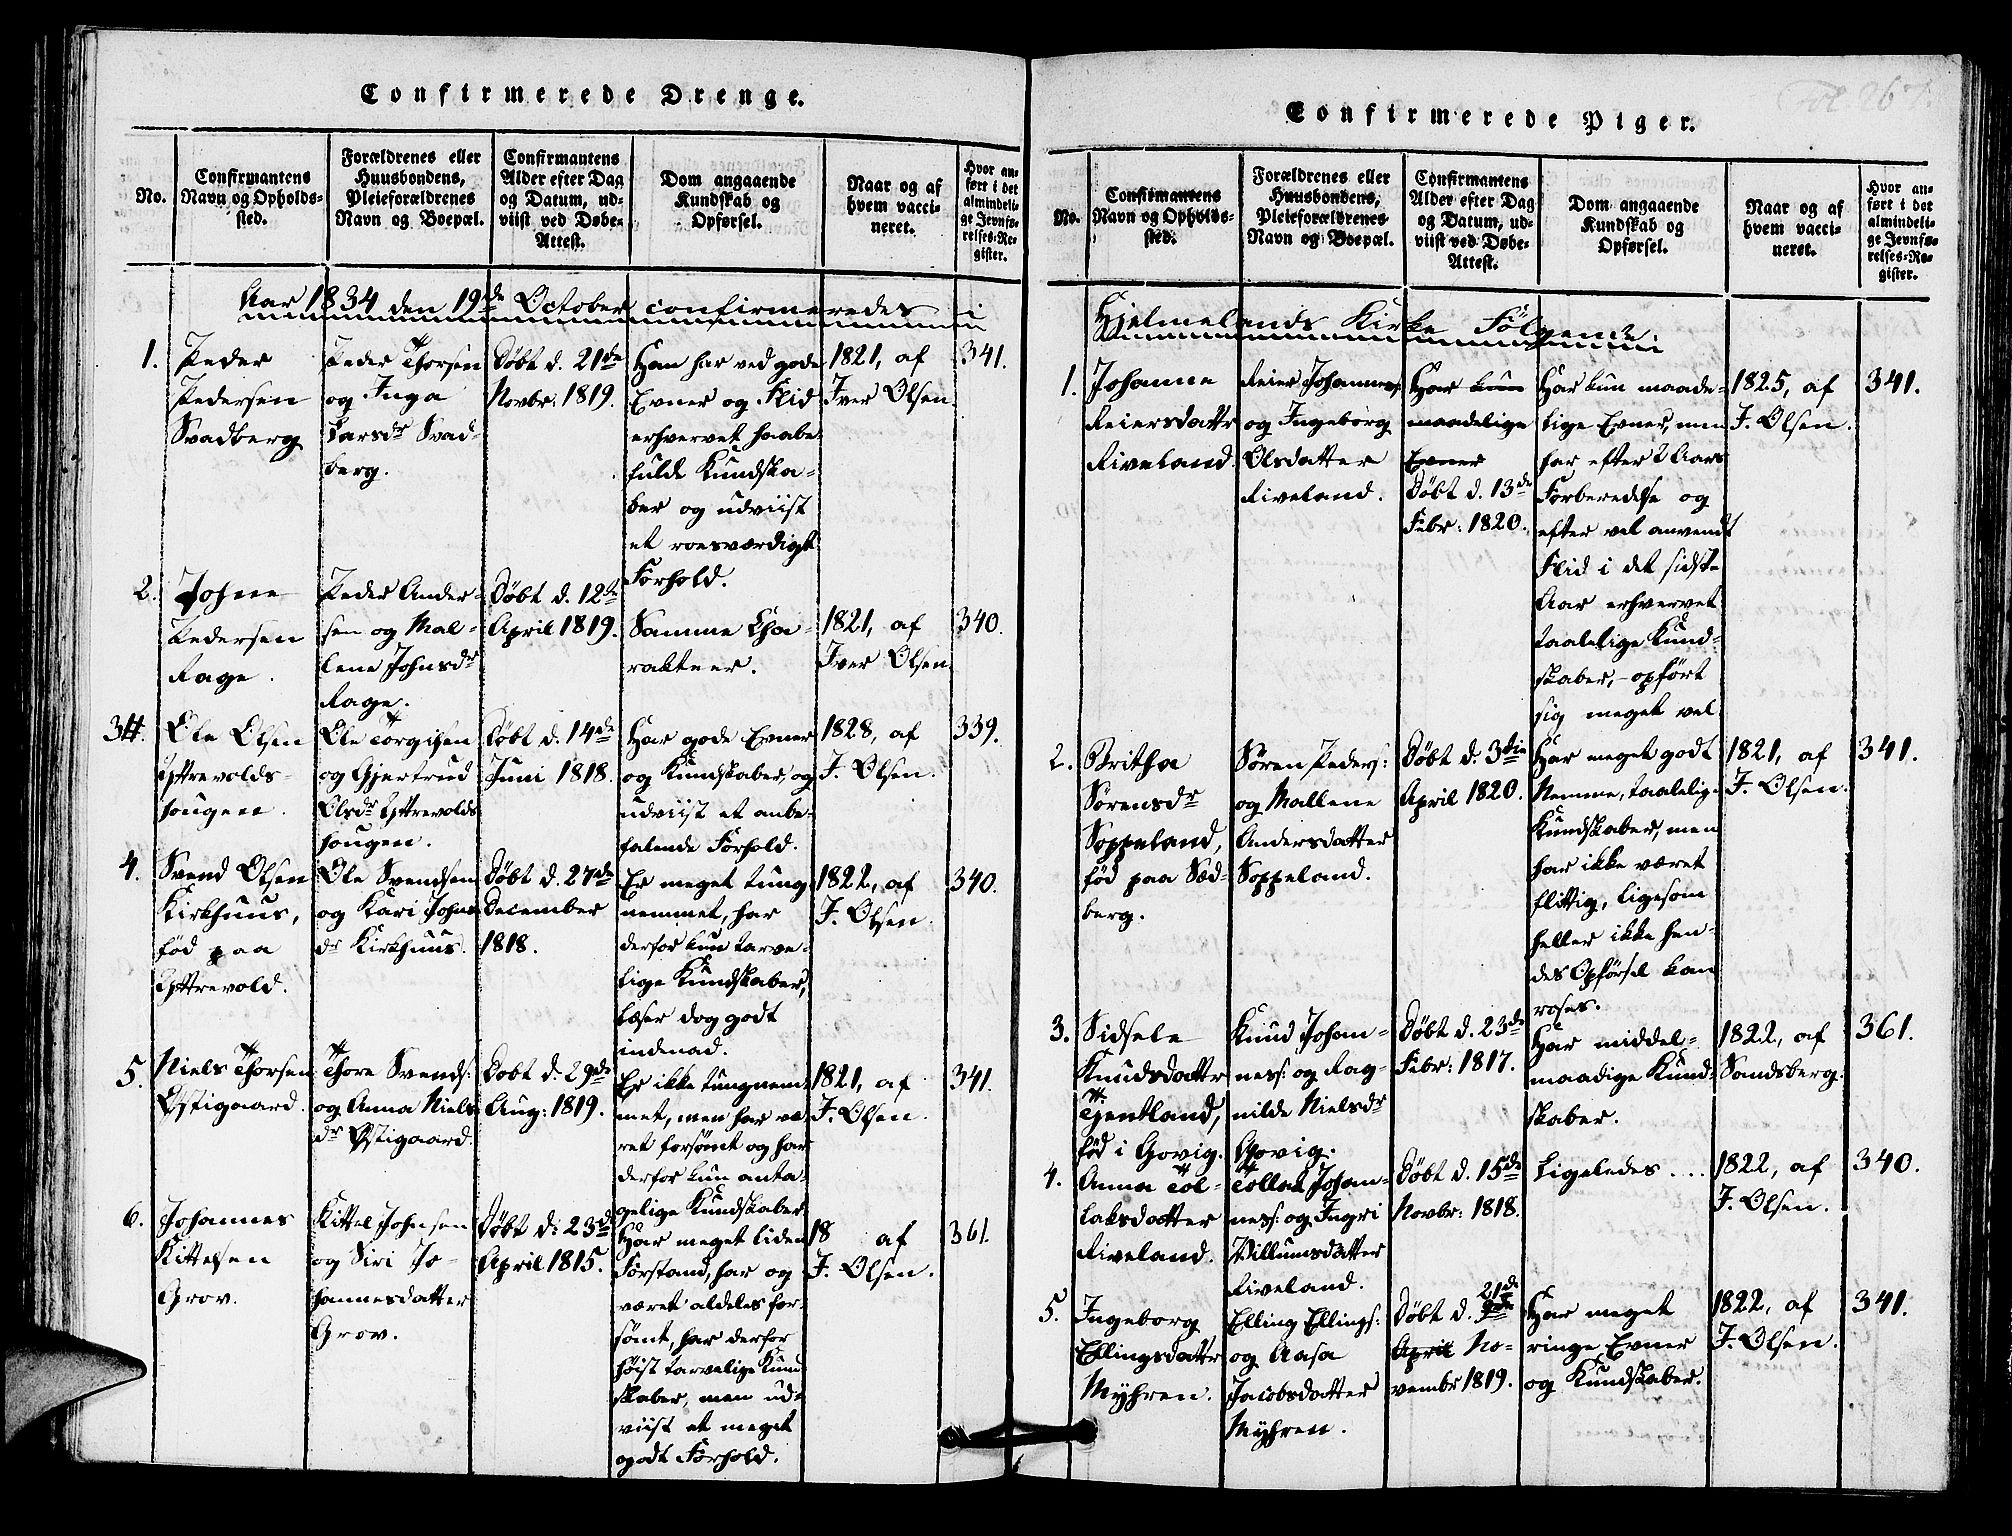 Confirmerede Drenge.
No.
Confirmantens
Navn og Opholds-
sted.
Forældrenes eller
Huusbondens,
Pleieforældrenes
Navn og Boepæl.
Confirmantens
Alder efter Dag
og Datum, ud-
viist ved Døbe-
Attest.
Dom angaaende
Kundskab og
Opførsel.
Naar og af
hvem vacci-
neret.
Hvor an-
ført i det
almindeli-
ge Jevnfø-
relses-Re-
gister.
Aar 1834 den 19de October confirmeredes i
1.
Peder
Pedersen
Svadberg
Peder Thorsen
og Inga
Larsdr Svad-
berg.
Døbt d. 21de
Novbr. 1819.
Han har ved gode
Evner og Flid
erhvervet haabe-
fulde Kundska-
ber og udviist
et roesværdigt
Forhold.
1821, af
Iver Olsen
341.
2.
Johne
Pedersen
Rage.
Peder Ander-
sen og Mal-
lene Johnsdr
Rage.
Døbt d. 12te
April 1819.
Samme Cha-
rakteer.
1821, af
Iver Olsen
340.
3.
Ole Olsen
Yttrevolds-
hougen.
Ole Torgisen
og Gjertrud
Olsdr Yttrevolds
hougen.
Døbt d. 14de
Juni 1818.
Har gode Evner
og Kundskaber, og
udviist et anbe-
falende Forhold.
1828, af
I. Olsen.
339.
4.
Svend Olsen
Kirkhuus,
fød paa
Yttrevold.
Ole Svendsen
og Kari Johns
dr Kirkhuus.
Døbt d. 27de
December
1818.
Er meget tung
nemmet, har
derfor kun tarve-
lige Kundskaber,
læser dog godt
indenad.
1822, af
I. Olsen.
340.
5.
Niels Thorsen
Østigaard.
Thore Svends:
og Anna Niels
dr Østigaard.
Døbt d. 29de
Aug: 1819.
Er ikke tungnem-
met, men har væ-
ret forsømt og har
derfor kun anta-
gelige Kundskaber
1821, af
I. Olsen.
341.
6.
Johannes
Kittelsen
Grov.
Kittel Johnsen
og Siri Jo-
hannesdatter
Grov.
Døbt d: 23de
April 1815.
Har meget liden
Forstand, har og
været aldeles for-
sømt, har derfor
høist tarvelige Kund
skaber, men ud-
viist et meget
godt Forhold.
18 af
I. Olsen.
361.
Confirmerede Piger.
Fol. 267.
No.
Confirmantens
Navn og Opholds-
sted.
Forældrenes eller
Huusbondens,
Pleieforældrenes
Navn og Boepæl.
Confirmantens
Alder efter Dag
og Datum, ud-
viist ved Døbe-
Attest.
Dom angaaende
Kundskab og
Opførsel.
Naar og af
hvem vacci-
neret.
Hvor an-
ført i det
almindeli-
ge Jevnfø-
relses-Re-
gister.
Hjelmelands Kirke Følgende:
1.
Johanne
Reiersdattr
Riveland.
Reier Johannes:
og Ingeborg
Olsdatter
Riveland.
Har kun
maadelige
Evner
Døbt d. 13de
Febr: 1820.
Har kun maade-
lige Evner, men
har efter 2 Aars
Forberedelse og
efter vel anvendt
Flid i det sidste
Aar erhvervet
taalelige Kund-
skaber, - opført
sig meget vel
1825, af
I. Olsen.
341.
2.
Britha
Sørensdr
Soppeland,
fød paa Sæd-
berg.
Søren Peders:
og Mallene
Andersdatter
Soppeland.
Døbt d. 3die
April 1820.
Har meget godt
Nemme, taalelige
Kundskaber, men
har ikke været
flittig, ligesom
heller ikke hen-
des Opførsel kan
roses.
1821, af
I. Olsen.
341.
3.
Sidsele
Knudsdattr
Tjentland,
fød i Govig.
Knud Johan-
ness: og Rag-
nilde Nielsdr
Govig.
Døbt d. 23de
Febr: 1817.
Har middel-
maadige Kund-
skaber.
1822, af
Sandsberg.
361.
4.
Anna Tol-
laksdatter
Riveland.
Tollak Johan-
ness: og Ingri
Villumsdatter
Riveland.
Døbt d. 15de
Novbr: 1818.
Ligeledes ...
1822, af
I. Olsen.
340.
5.
Ingeborg
Ellingsdattr
Myhren.
Elling Ellings:
og Aasa
Jacobsdatter
Myhren.
21de
Døbt d.
April No-
vembr 1819.
Har meget
ringe Evner
og Kundskaber.
1822, af
I. Olsen.
341.